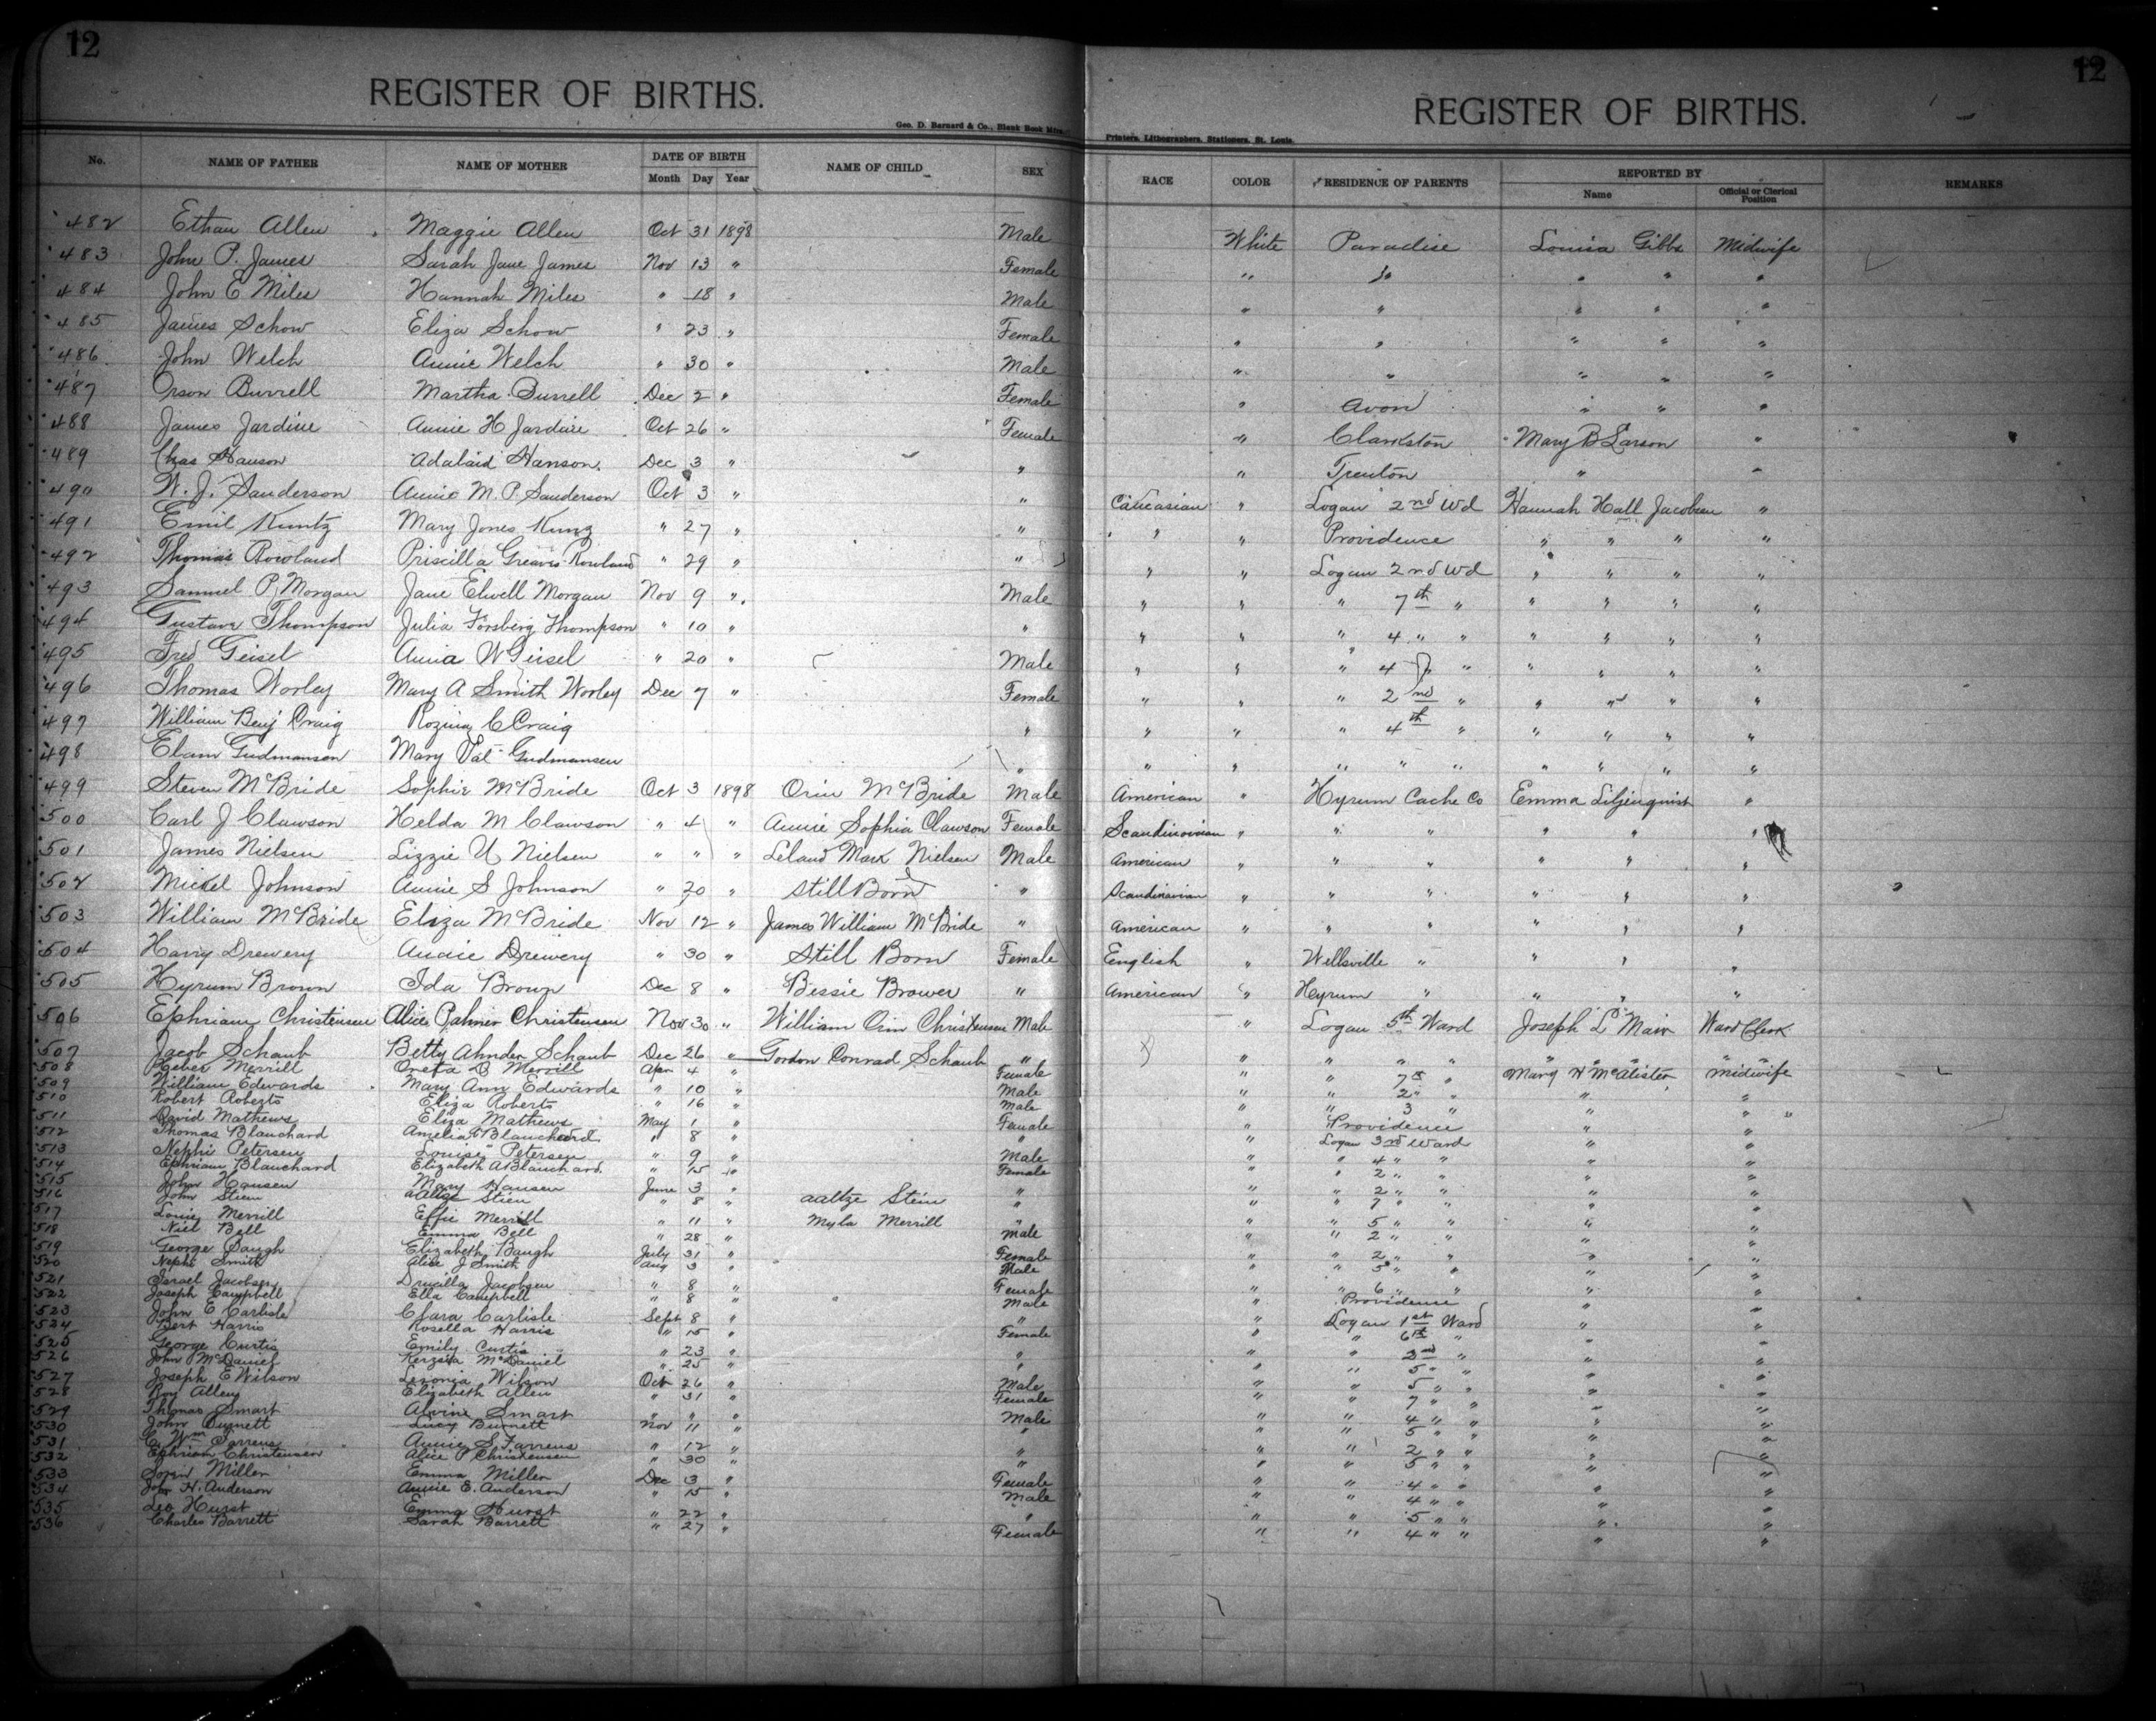 12
REGISTER OF BIRTHS.
Geo. D. Barnard & Co., Blank Book Mfrs.
12
REGISTER OF BIRTHS.
Printers, Lithographers, Stationers, St. Louis.
No. NAME OF FATHER NAME OF MOTHER DATE OF BIRTH Month Day Year NAME OF CHILD SEX RACE COLOR RESIDENCE OF PARENTS REPORTED BY Name Official or Clerical Position REMARKS
482 Ethan Allen Maggie Allen Oct 31 1898 Male White Paradise Louisa Gibbs Midwife
483 John P. James Sarah Jane James Nov 13 " Female " " " " "
484 John E Miles Hannah Miles " 18 " Male " " " " "
485 James Schow Eliza Schow " 23 " Female " " " " "
486 John Welch Annie Welch " 30 " Male " " " " "
487 Orson Burrell Martha Burrell Dec 2 " Female " Avon " " "
488 James Jardine Annie H Jardine Oct 26 " Female " Clarkston Mary B Larson "
489 Chas Hanson Adalaid Hanson Dec 3 " " " Trenton " "
490 W. J. Sanderson Annie M. P. Sanderson Oct 3 " " Caucasian " Logan 2nd Wd Hannah Hall Jacobsen "
491 Emil Kuntz Mary Jones Kunz " 27 " " " " Providence " " " "
492 Thomas Rowland Priscilla Greaves Rowland " 29 " " " " Logan 2nd Wd " " " "
493 Samuel P. Morgan Jane Elwell Morgan Nov 9 " Male " " " 7th " " " " "
494 Gustave Thompson Julia Forsberg Thompson " 10 " " " " " 4 " " " " " "
495 Fred Geisel Anna W Geisel " 20 " Male " " " 4 " " " " " "
496 Thomas Worley Mary A Smith Worley Dec 7 " Female " " " 2nd " " " " "
497 William Benj Craig Rozina C Craig " " " " 4th " " " " "
498 Elam Gudmanson Mary Gudmansen " " " " " " " " " "
499 Steven McBride Sophie McBride Oct 3 1898 Orin McBride Male American " Hyrum Cache Co Emma Liljenquist "
500 Carl J Clawson Helda M Clawson " 4 " Annie Sophia Clawson Female Scandinavian " " " " " "
501 James Nielsen Lizzie U Nielsen " " " Leland Mark Nielsen Male American " " " " " "
502 Mickel Johnson Annie S Johnson " 20 " Still Born " Scandinavian " " " " " "
503 William McBride Eliza McBride Nov 12 " James William McBride " American " " " " " "
504 Harry Drewery Annie Drewery " 30 " Still Born Female English " Wellsville " " " "
505 Hyrum Brown Ida Brown Dec 8 " Bessie Brower " American " Hyrum " " " "
506 Ephriam Christensen Alice Palmer Christensen Nov 30 " William Orin Christensen Male " Logan 5th Ward Joseph L Mair Ward Clerk
507 Jacob Schaub Betty Ahnder Schaub Dec 26 " Gordon Conrad Schaub " " " " " " " " "
508 Heber Merrill Oneta B Merrill Apr 4 " Female " " 7th " Mary H McAlister Midwife
509 William Edwards Mary Ann Edwards " 10 " Male " " 2 " " " "
510 Robert Roberts Eliza Roberts " 16 " Male " " 3 " " "
511 David Mathews Eliza Mathews May 1 " Female " Providence " "
512 Thomas Blanchard Amelia Blanchard " 8 " " " Logan 3rd Ward " "
513 Nephi Petersen Louise Petersen " 9 " Male " " 4 " " " "
514 Ephriam Blanchard Elizabeth A Blanchard " 15 " Female " " 2 " " " "
515 John Hansen Mary Hansen June 3 " " " " 2 " " " "
516 John Stien Aaltze Stien " 8 " aaltze Stein " " " 7 " " " "
517 Louie Merrill Effie Merrill " 11 " Myla Merrill " " " 5 " " " "
518 Niel Bell Emma Bell " 28 " Male " " 2 " " " "
519 George Baugh Elizabeth Baugh July 31 " Female " " 2 " " " "
520 Nephi Smith Alice J Smith Aug 3 " Male " " 5 " " " "
521 Israel Jacobsen Drucilla Jacobsen " 8 " Female " " 6 " " " "
522 Joseph Campbell Ella Campbell " 8 " Male " Providence " "
523 John E Carlisle Clara Carlisle Sept 8 " " " Logan 1st Ward " "
524 Bert Harris Rosella Harris " 15 " Female " " 6th " " "
525 George Curtis Emily Curtis " 23 " " " " 2nd " " "
526 John McDaniel Kerzsia McDaniel " 25 " " " " 5 " " " "
527 Joseph E Wilson Leronia Wilson Oct 26 " Male " " 5 " " " "
528 Roy Allen Elizabeth Allen " 31 " Female " " 7 " " " "
529 Thomas Smart Alvine Smart " " " Male " " 4 " " " "
530 John Burnett Lucy Burnett Nov 11 " " " " 5 " " " "
531 C. Wm Farrens Annie S. Farrens " 12 " " " " 2 " " " "
532 Ephriam Christensen Alice P Christensen " 30 " " " " 5 " " " "
533 Miller Emma Miller Dec 3 " Female " " 4 " " " "
534 John H. Anderson Annie E. Anderson " 15 " Male " " 4 " " " "
535 Leo Hurst Emma Hurst " 22 " " " " 5 " " " "
536 Charles Barrett Sarah Barrett " 27 " Female " " 4 " " " "